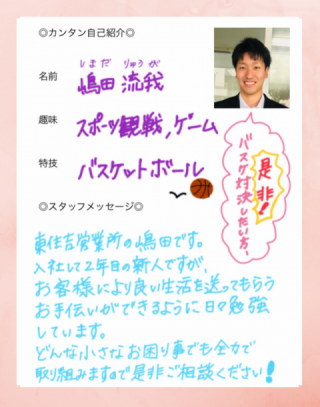 ◎カンタン自己紹介◎
名前
しまだ りゅうが
嶋田 流我
趣味
スポーツ観戦，ゲーム
特技
バスケットボール
バスケ対決したい方、
是非!
◎スタッフメッセージ◎
東住吉営業所の嶋田です。
入社して2年目の新人ですが、
お客様により良い生活を送ってもらう
お手伝いができるように日々勉強
しています。
どんな小さなお困り事でも全力で
取り組みますので是非ご相談ください!